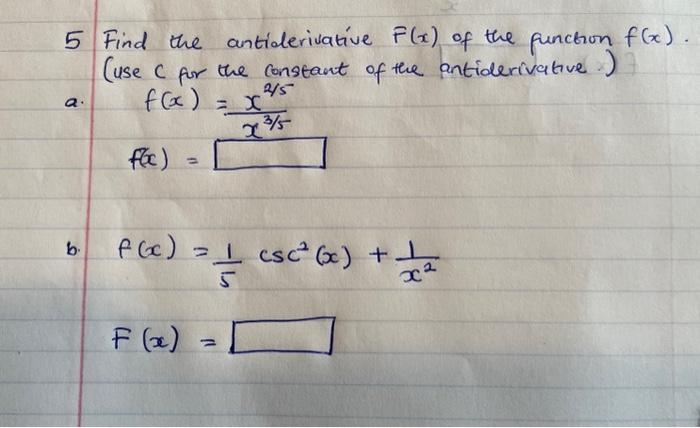 5 Find the antiderivative F(x) of the function f(x).
(use C for the constant of the antiderivative.)
a. f(x) = x^2/5
x^3/5
f(x) =
b. f(x) = 1/5 csc²(x) + 1/x²
F(x) =